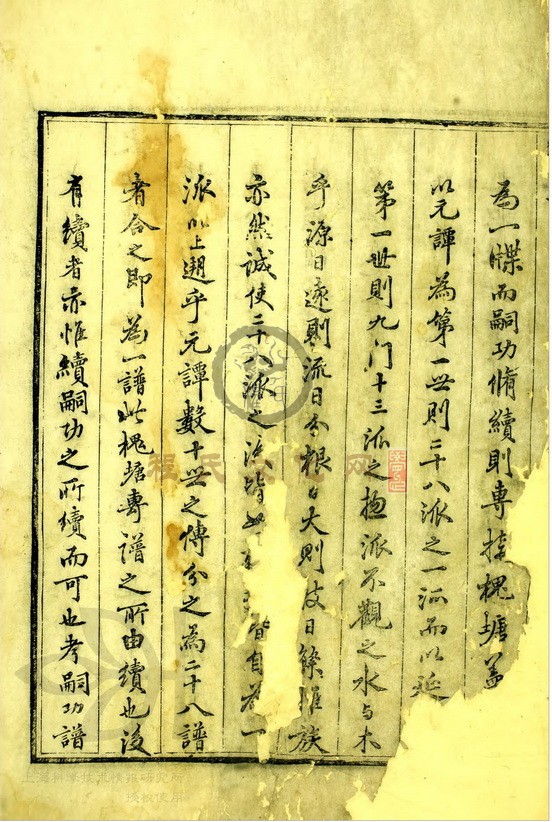 為一牒而嗣功脩續則專據槐塘盖
以元譚為第一世則二十八派之一派而以延
第一世則九门十三派之揔派不觀之水与木
乎源日遠則流日分根日大則枝日繁惟族
亦然誠使二十八派之 皆 皆自為一
派以上遡乎元譚數十世之傳分之為二十八譜
者合之即為一譜此槐塘專譜之所由續也後
有續者亦惟續嗣功之所續而可也考嗣功譜
程氏 网
上海科学技术情报研究所
授权使用